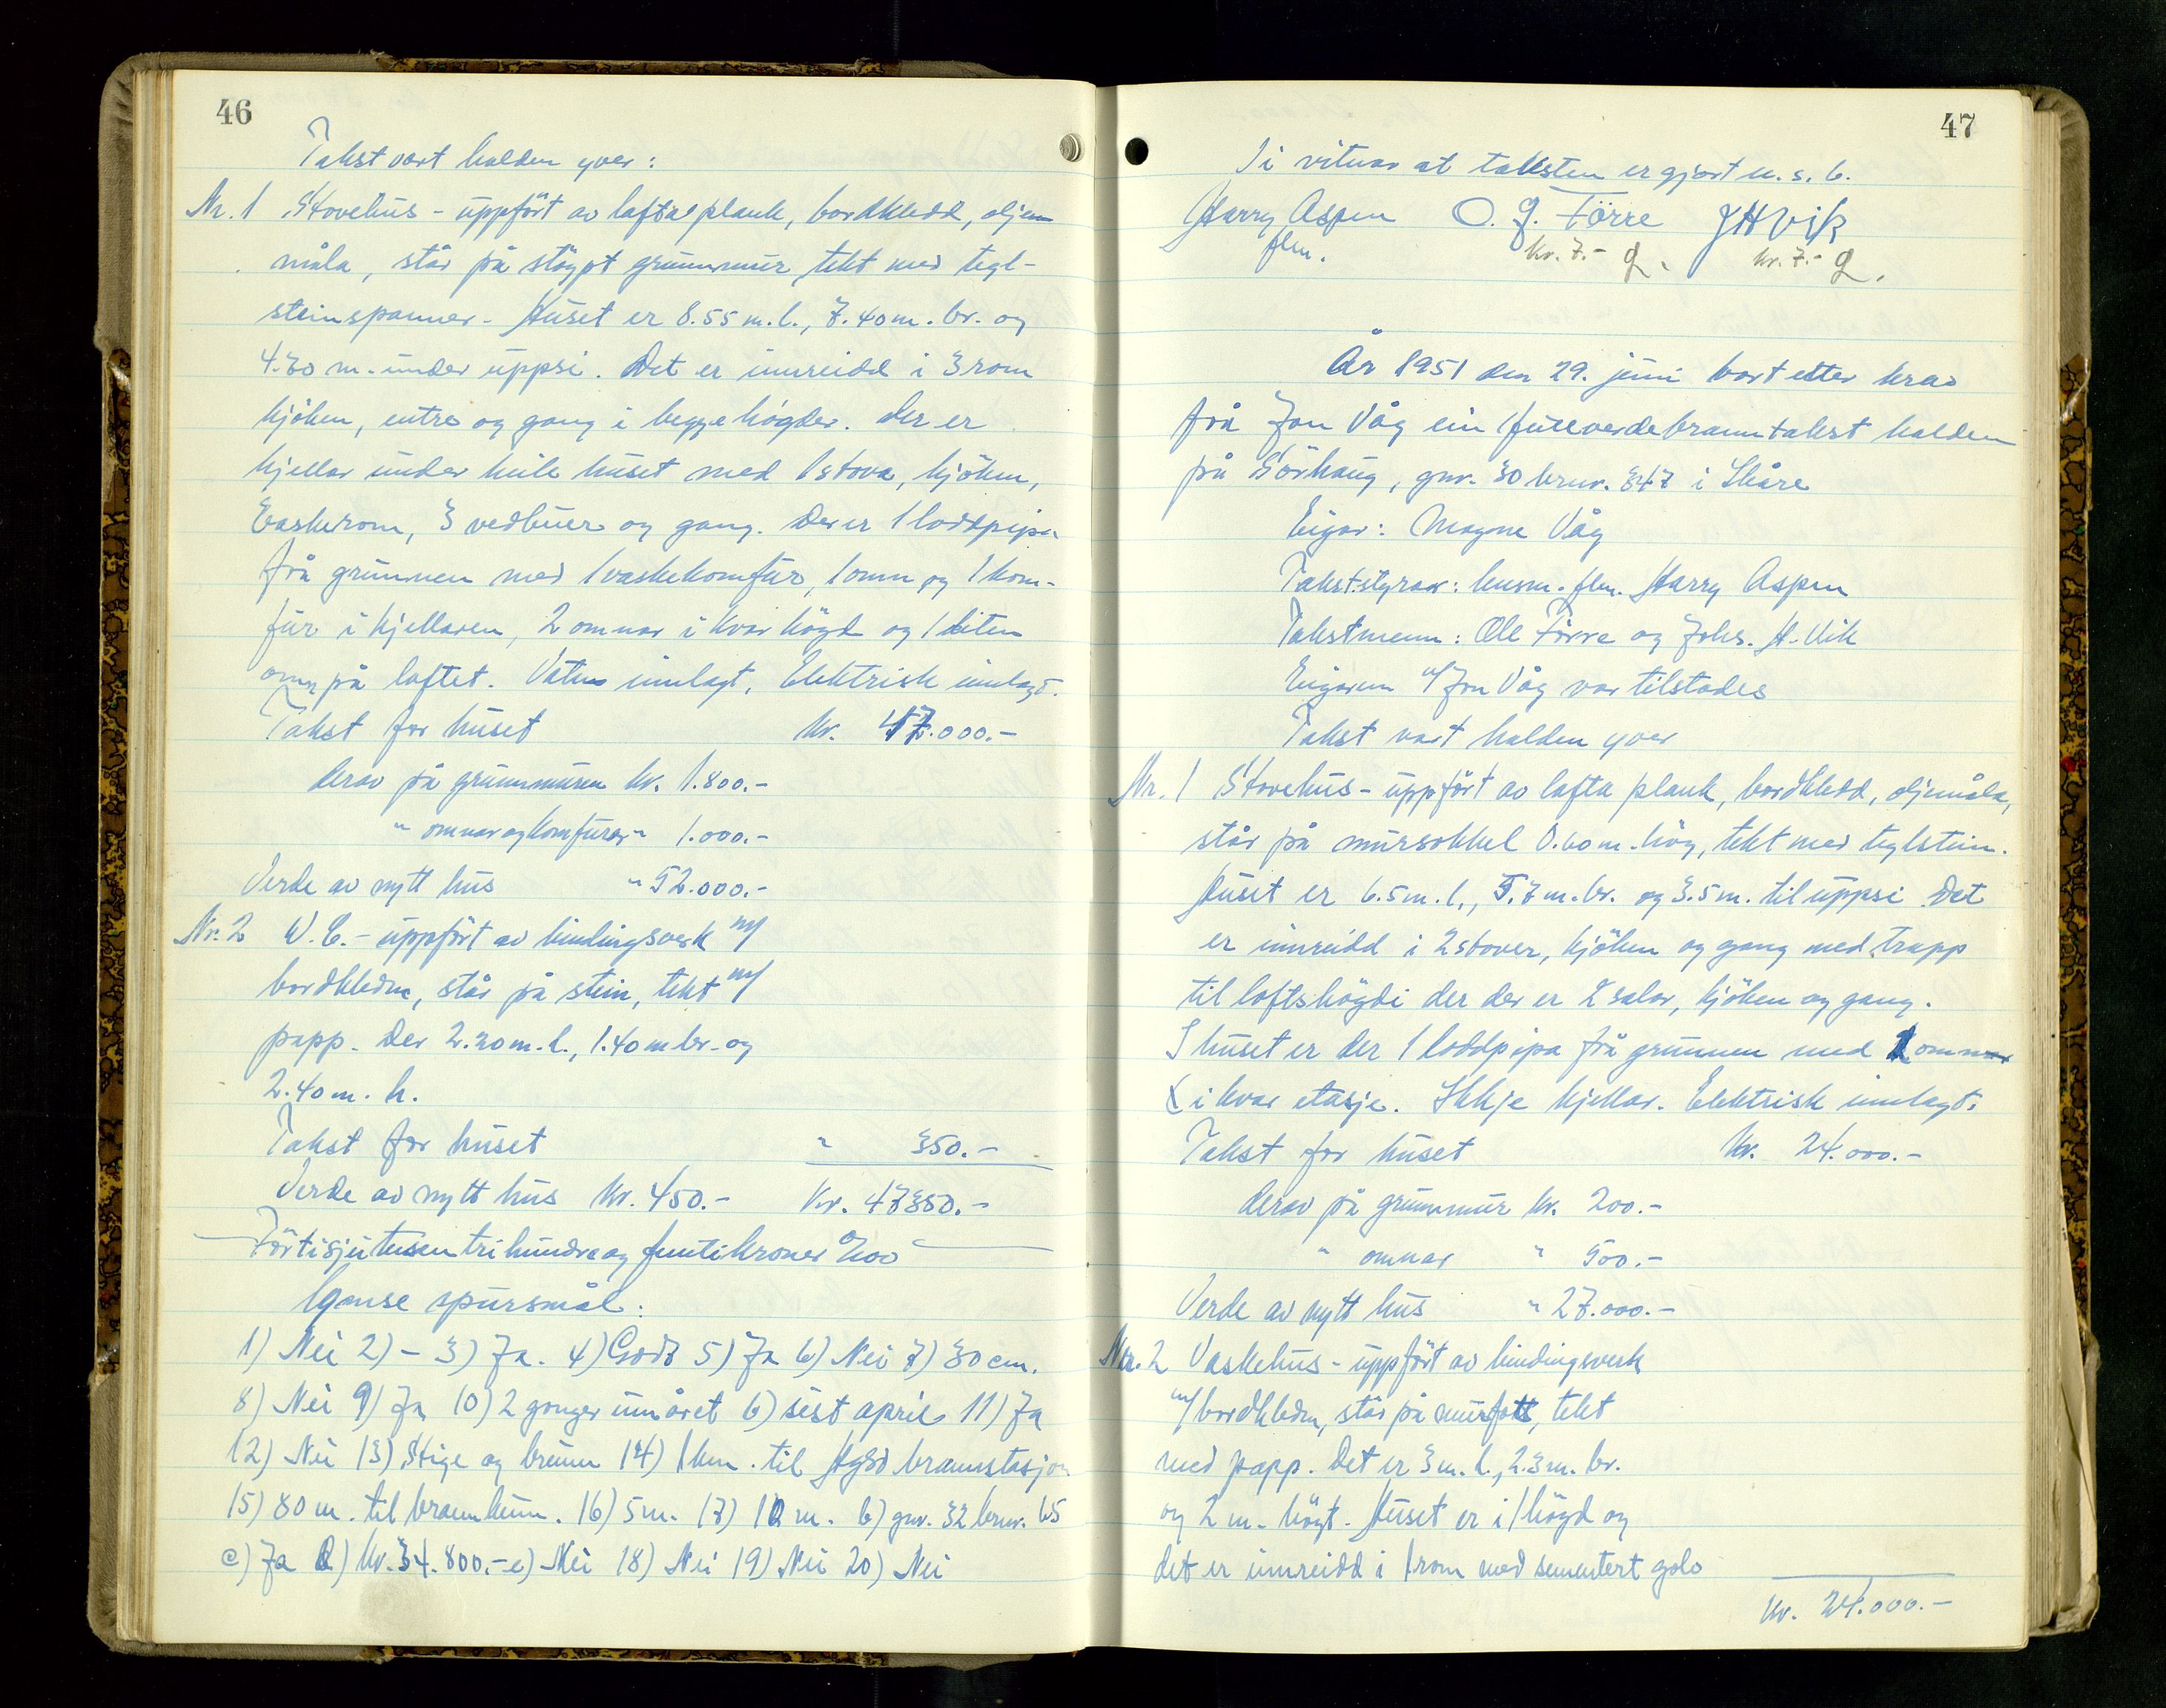 46
Takst vart halden yver:
Nr. 1 Stovehus - uppført av lafta plank, bordkledd, oljem
måla, står på støypt grunnmur, tekt med tegl-
steinspanner. Huset er 8.55 m. l., 7.40 m. br. og
m. under uppsi. Det er innreidd i 3 rom
kjøken, entre og gang i begge høgder. Der er
kjellar under heile huset med 1 stova, kjøken,
Vaskerom, 3 vedbuer og gang. Der er 1 loddpipa
frå grunnen med 1 vaskekomfur, 1 omn og 1 kom-
fur i kjellaren, 2 omnar i kvar høgd og 1 liten
omn på loftet. Vatn innlagt. Elektrisk innlagt.
Takst for huset kr. 47.000.-
derav på grunnmuren kr. 1.800.-
" omnar og komfurer " 1.000.-
Verde av nytt hus " 52.000.-
Nr. 2 W.C. - uppført av bindingsverk m/
bordkledn, står på stein, tekt m/
papp. Der 2.20 m. l., 1.40 m br. og
2.40 m. h.
Takst for huset " 350.-
Verde av nytt hus kr. 450.- Kr. 47350.-
Førtisjutusentrihundraogfemtikroner 0/100
Ymse spursmål:
1) Nei 2) - 3) Ja. 4) Godt 5) Ja 6) Nei 7) 30 cm.
8) Nei 9) Ja 10) 2 gonger um året b) sist april 11) Ja
12) Nei 13) Stige og brunn 14) 1 km. til Hgsd brannstasjon
15) 80 m. til brannkum. 16) 5 m. 17) 10 m. b) gnr. 32 bnr. 65
c) Ja d) kr. 34.800.- e) Nei 18) Nei 19) Nei 20) Nei
47
Vi vitnar at taksten er gjort u. s. b.
Harry Aspen O. G. Førre J H Vik
flm. kr. 7.- kr. 7.-
År 1951 den 29. juni vart etter krav
frå Jon Våg ein huseverdebranntakst halden
på Sørhaug, gnr. 30 bnr. 347 i Skåre
Eigar: Magne Våg
Takststyrar: lensm. flm. Harry Aspen
Takstmenn: Ole Førre og Johs. H. Vik
Eigaren v/ Jon Våg var tilstades
Takst vart halden yver
Nr. 1 Stovehus - uppført av lafta plank, bordkledd, oljemåla,
står på mursokkel 0.60 m. høg, tekt med teglstein.
Huset er 6.5 m. l., 5.7 m. br. og 3.5 m. til uppsi. Det
er innreidd i 2 stover, kjøken og gang med trapp
til loftshøgdi der der er 2 salar, kjøken og gang.
I huset er der 1 loddpipa frå grunnen med 1 omn
i kvar etasje. Ikkje kjellar. Elektrisk innlagt.
Takst for huset kr. 24.000.-
derav på grunnmur kr. 200.-
" omnar " 500.-
Verde av nytt hus " 27.000.-
Nr. 2 Vaskehus - uppført av bindingsverk
m/ bordkledn, står på murfott, tekt
med papp. Det er 3 m. l., 2.3 m. br.
og 2 m. høgt. Huset er i 1 høgd og
det er innreidd i 1 rom med sementert golv
kr. 24.000.-